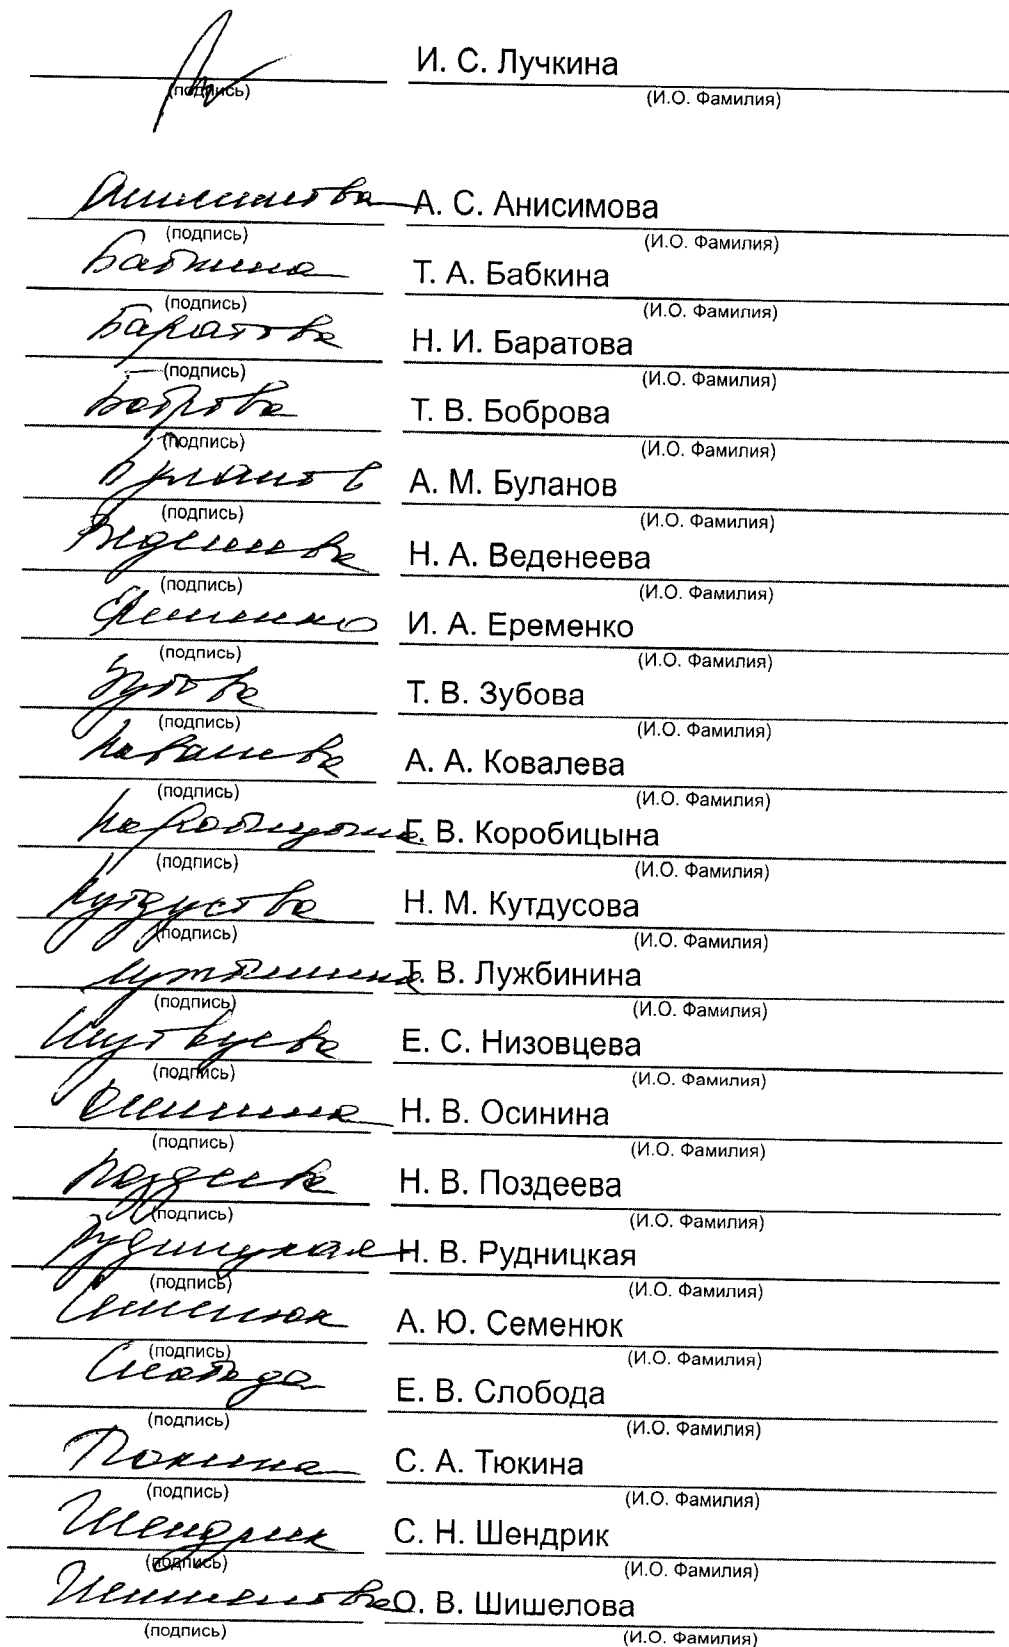 И. С. Лучкина
(подпись) (И.О. Фамилия)
Анисимова А. С. Анисимова
(подпись) (И.О. Фамилия)
Бабкина Т. А. Бабкина
(подпись) (И.О. Фамилия)
Баратова Н. И. Баратова
(подпись) (И.О. Фамилия)
Боброва Т. В. Боброва
(подпись) (И.О. Фамилия)
Буланов А. М. Буланов
(подпись) (И.О. Фамилия)
Веденеева Н. А. Веденеева
(подпись) (И.О. Фамилия)
Еременко И. А. Еременко
(подпись) (И.О. Фамилия)
Зубова Т. В. Зубова
(подпись) (И.О. Фамилия)
Ковалева А. А. Ковалева
(подпись) (И.О. Фамилия)
Коробицына Г. В. Коробицына
(подпись) (И.О. Фамилия)
Кутдусова Н. М. Кутдусова
(подпись) (И.О. Фамилия)
Лужбинина Т. В. Лужбинина
(подпись) (И.О. Фамилия)
Низовцева Е. С. Низовцева
(подпись) (И.О. Фамилия)
Осинина Н. В. Осинина
(подпись) (И.О. Фамилия)
Поздеева Н. В. Поздеева
(подпись) (И.О. Фамилия)
Рудницкая Н. В. Рудницкая
(подпись) (И.О. Фамилия)
Семенюк А. Ю. Семенюк
(подпись) (И.О. Фамилия)
Слобода Е. В. Слобода
(подпись) (И.О. Фамилия)
Тюкина С. А. Тюкина
(подпись) (И.О. Фамилия)
Шендрик С. Н. Шендрик
(подпись) (И.О. Фамилия)
Шишелова О. В. Шишелова
(подпись) (И.О. Фамилия)